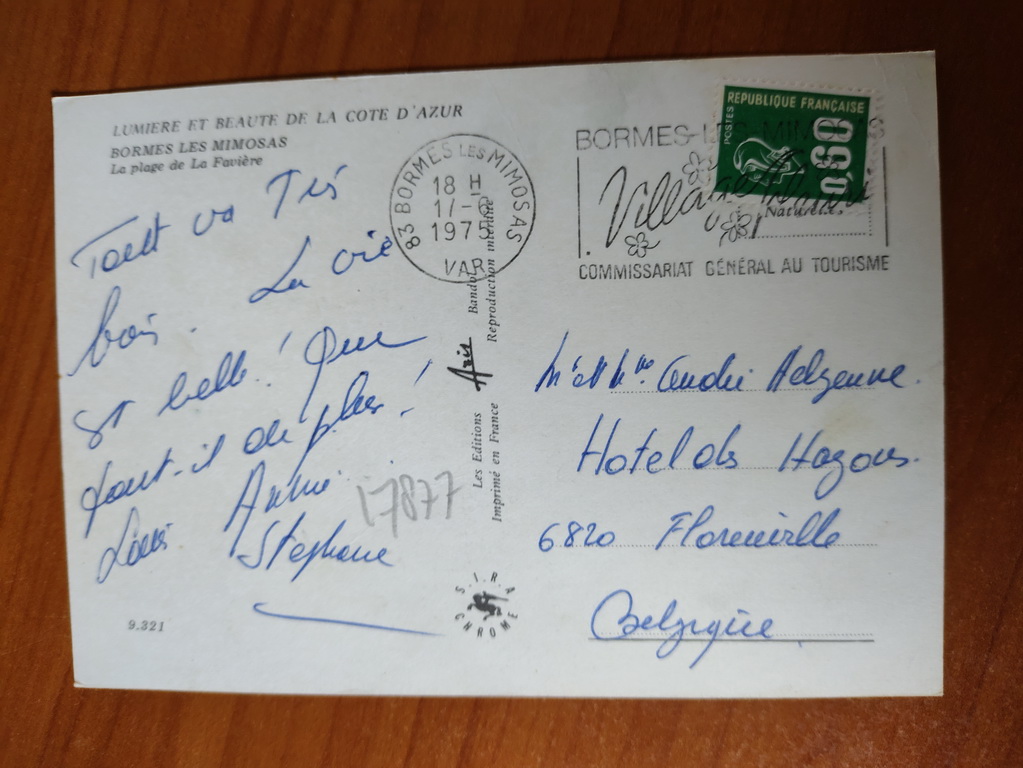 LUMIERE ET BEAUTE DE LA COTE D'AZUR
BORMES LES MIMOSAS
La plage de La Favière
Tout va Très
bien. La vie
est belle! Que
faut-il de plus!
Louis Annie
Stephane
17877
9.321
83 BORMES LES MIMOSAS
18 H
1975
VAR
Les Editions Aris Bandol
Imprimé en France Reproduction interdite
S.I.R.A.
CHROME
REPUBLIQUE FRANÇAISE
POSTES
0,60
BORMES-LES-MIMOSAS
Village
Naturelle.
COMMISSARIAT GÉNÉRAL AU TOURISME
M et Mme André
Hotel des
6820 Florenville
Belgique